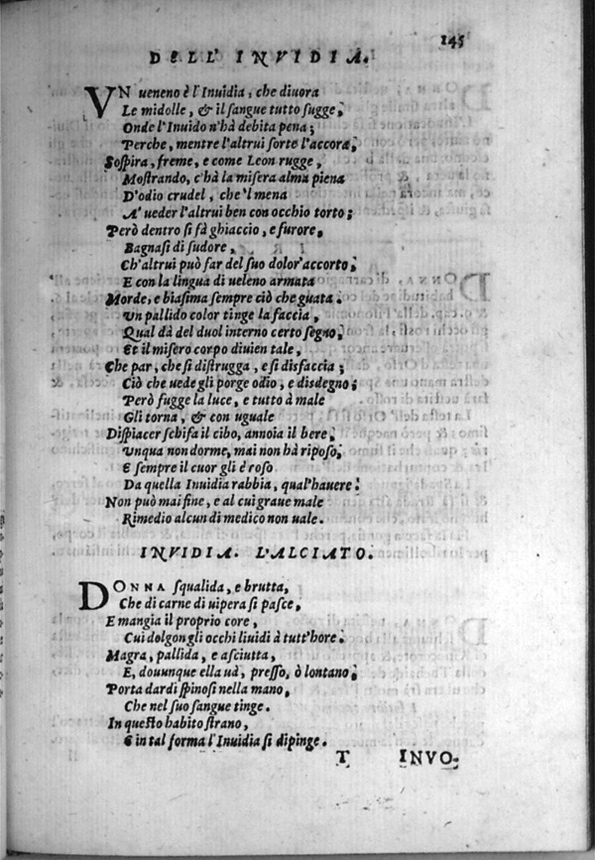 145
DELL' INVIDIA.
VN ueneno è l'Inuidia, che diuora
Le midolle, & il sangue tutto sugge,
Onde l'Inuido n'hà debita pena;
Perche, mentre l'altrui sorte l'accora,
Sospira, freme, e come Leon rugge,
Mostrando, c'hà la misera alma piena
D'odio crudel, che 'l mena
A' ueder l'altrui ben con occhio torto;
Però dentro si fà ghiaccio, e furore,
Bagnasi di sudore,
Ch'altrui può far del suo dolor'accorto,
E con la lingua di ueleno armata
Morde, e biasima sempre ciò che guata.
Vn pallido color tinge la faccia,
Qual dà del duol interno certo segno,
Et il misero corpo diuien tale,
Che par, che si distrugga, e si disfaccia;
Ciò che uede gli porge odio, e disdegno;
Però fugge la luce, e tutto à male
Gli torna, & con uguale
Dispiacer schifa il cibo, annoia il bere,
Vnqua non dorme, mai non hà riposo,
E sempre il cuor gli è roso
Da quella Inuidia rabbia, qual'hauere
Non può mai fine, e al cui graue male
Rimedio alcun di medico non uale.
INVIDIA. L'ALCIATO.
DONNA squalida, e brutta,
Che di carne di uipera si pasce,
E mangia il proprio core,
Cui dolgon gli occhi liuidi à tutt'hore.
Magra, pallida, e asciutta,
E, douunque ella uà, presso, ò lontano,
Porta dardi spinosi nella mano,
Che nel suo sangue tinge.
In questo habito strano,
E in tal forma l'Inuidia si dipinge.
T INVO-